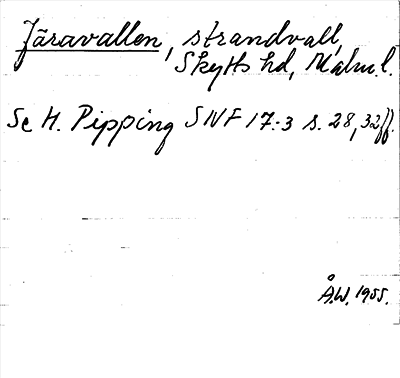 Järavallen, strandvall,
Skytts hd, Malm.l.
Se H. Pipping SNF 17:3 s. 28, 32ff.
Å.W. 1955.